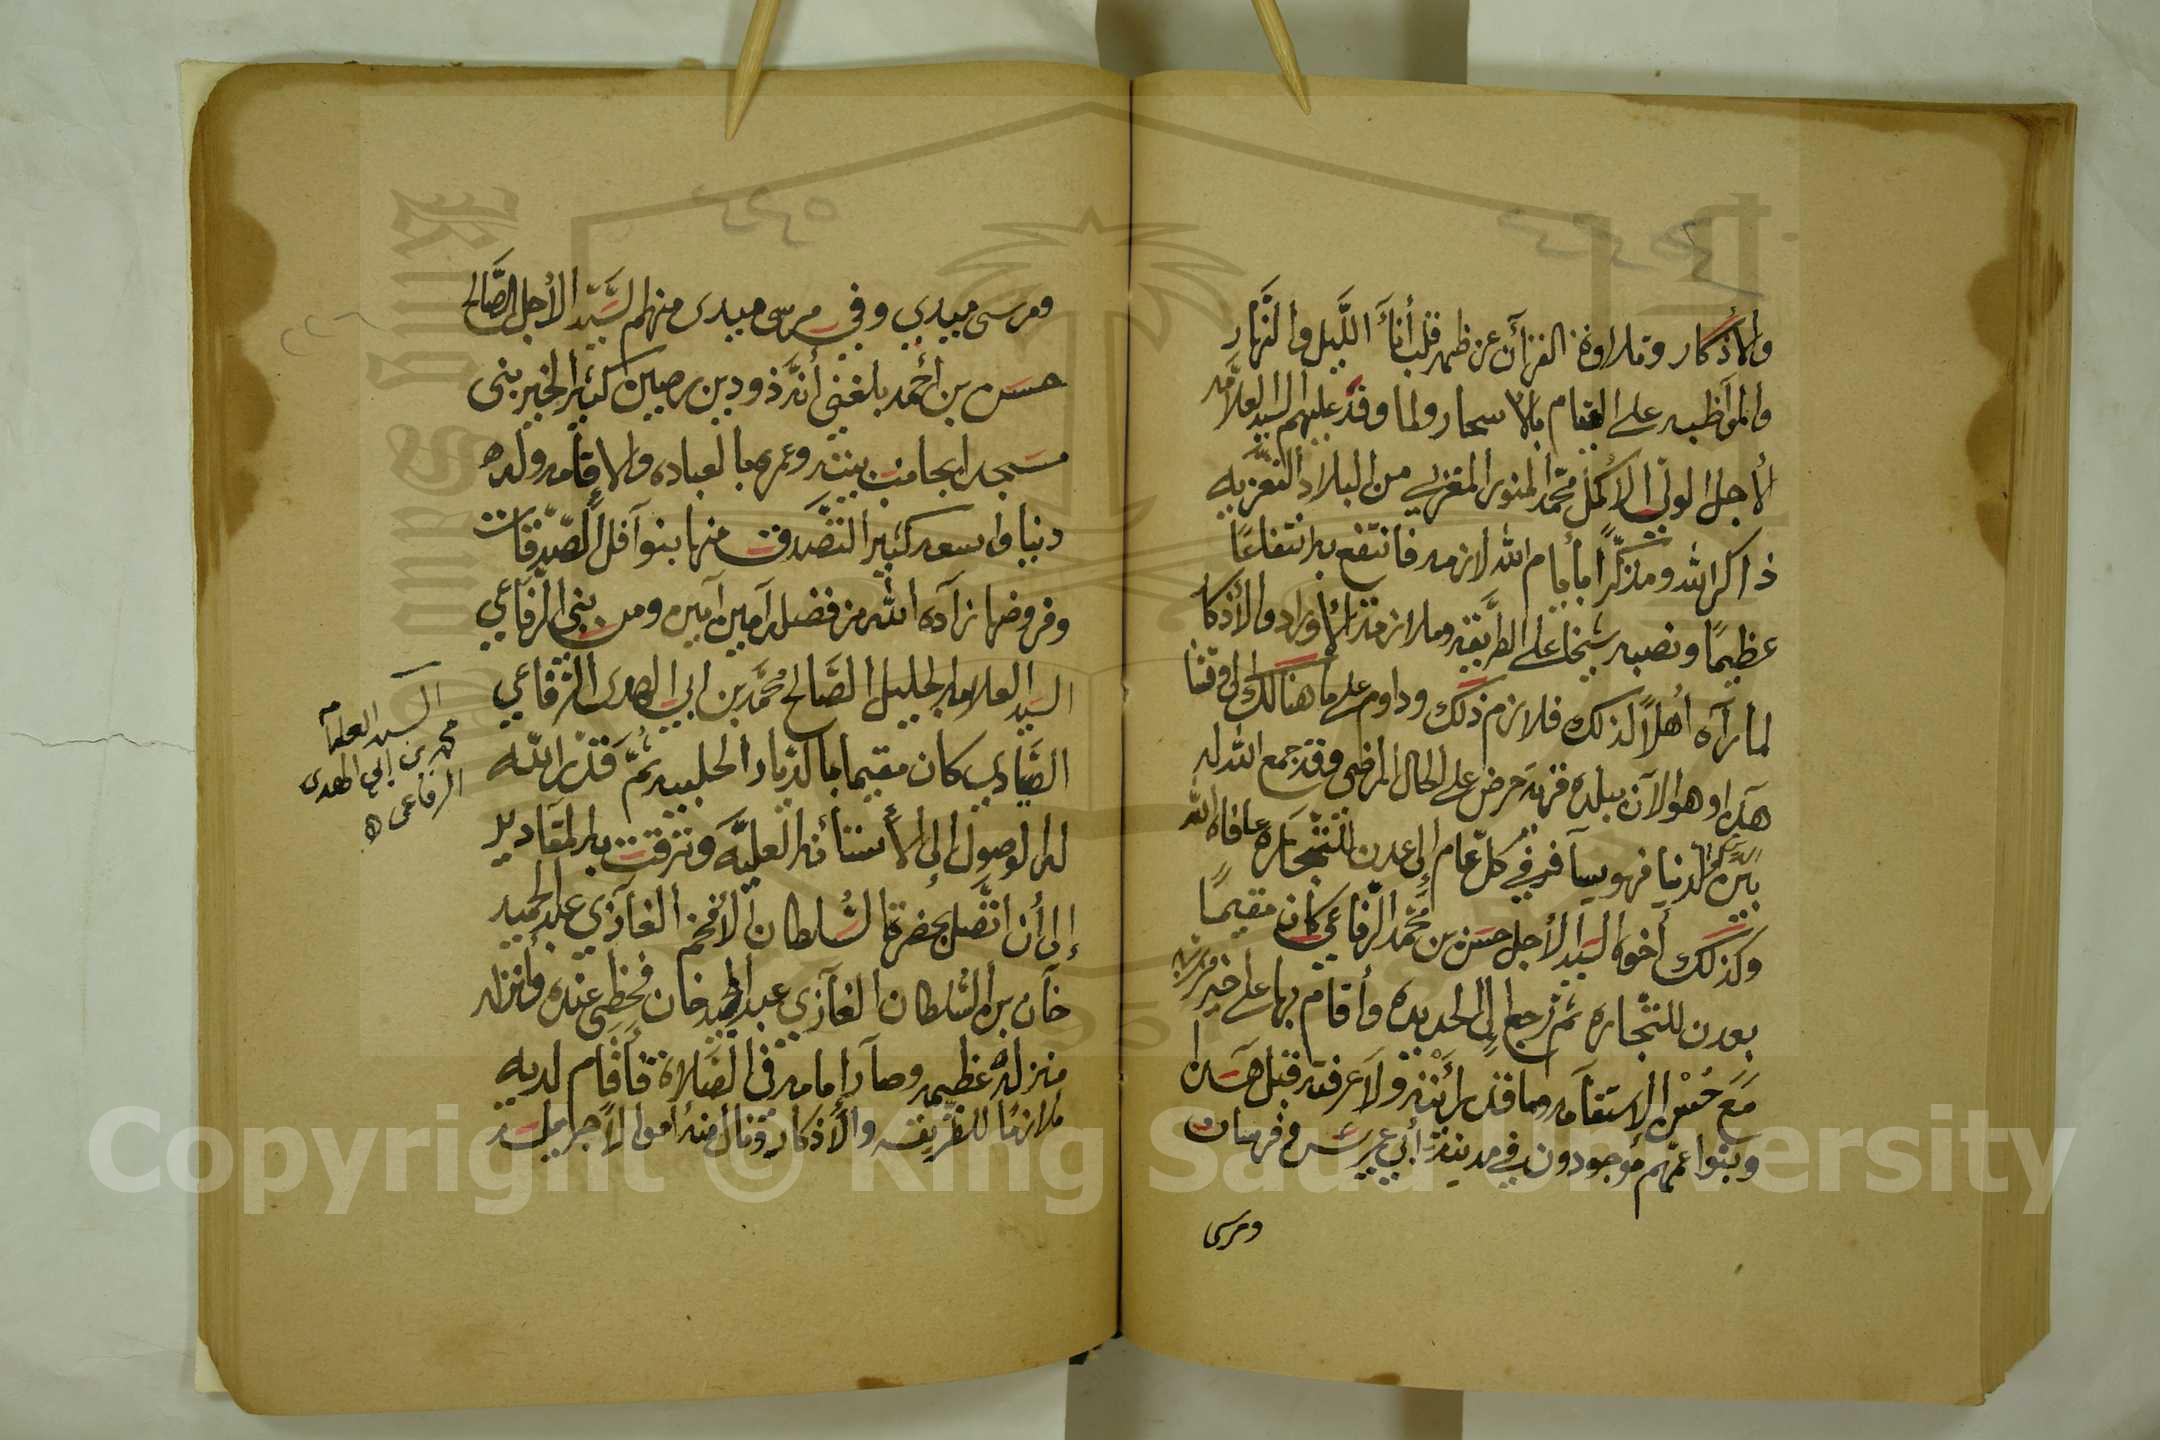 والأذكار وتلاوة القرآن عن ظهر قلب أناء الليل والنهار
والمواظبه على القيام بالاسحار ولما وفد عليهم السيد العلامه
الأجل الولي الأكمل محمد المنور المغربي من البلاد التعزيه
ذاكر الله ومذكرًا بأيام الله لازمه فانتفع به انتفاعًا
عظيمًا ونصبه شيخا على الطريقه وملازمة الأوراد والأذكار
لما رآه أهلاً لذلك فلازم ذلك وداوم على ما هنالك الى وقتنا
هذا وهو الآن ببلده قرية حرض على الحال المرضي وقد جمع الله له
بين الدنيا فهو يسافر في كل عام إلى عدن للتجاره عافاه الله
وكذلك أخوه السيد الأجل حسن بن محمد الرفاعي كان مقيمًا
بعدن للتجاره ثم رجع إلى الحديده وأقام بها على خير
مع حسن الاستقامه وما قد رأيته ولا عرفته قبل هذا
وبنوا عمهم موجودون في مدينة أبي عريش وفرسان
ومرسى
ومرسى ميدي وفي مرسى ميدي منهم السيد الأجل الصالح
حسن بن أحمد بلغني أنه ذو دين رصين كثير الخير بنى
مسجدا بجانب بيته وعمره بالعباده والاقامه ولده
دنيا واسعه كثير التصدق منها بنوافل الصدقات
وفروضها زاده الله من فضله آمين آمين ومن بني الرفاعي
السيد العلامه الجليل الصالح محمد بن ابي الهدى الرفاعي
الصيادي كان مقيما بالديار الحلبيه ثم قدر الله
له الوصول إلى الأستانه العليه وترقت به المقادير
إلى أن اتصل بحضرة السلطان الأفخم الغازي عبد الحميد
خان بن السلطان الغازي عبد المجيد خان فحظي عنده وأنزله
منزلة عظيمه وصار إمامه في الصلاة فأقام لديه
ملازمًا للطريقه والأذكار ونال منه أموالا جزيله
السيد العلامه
محمد بن أبي الهدى
الرفاعي
Copyright © King Saud University